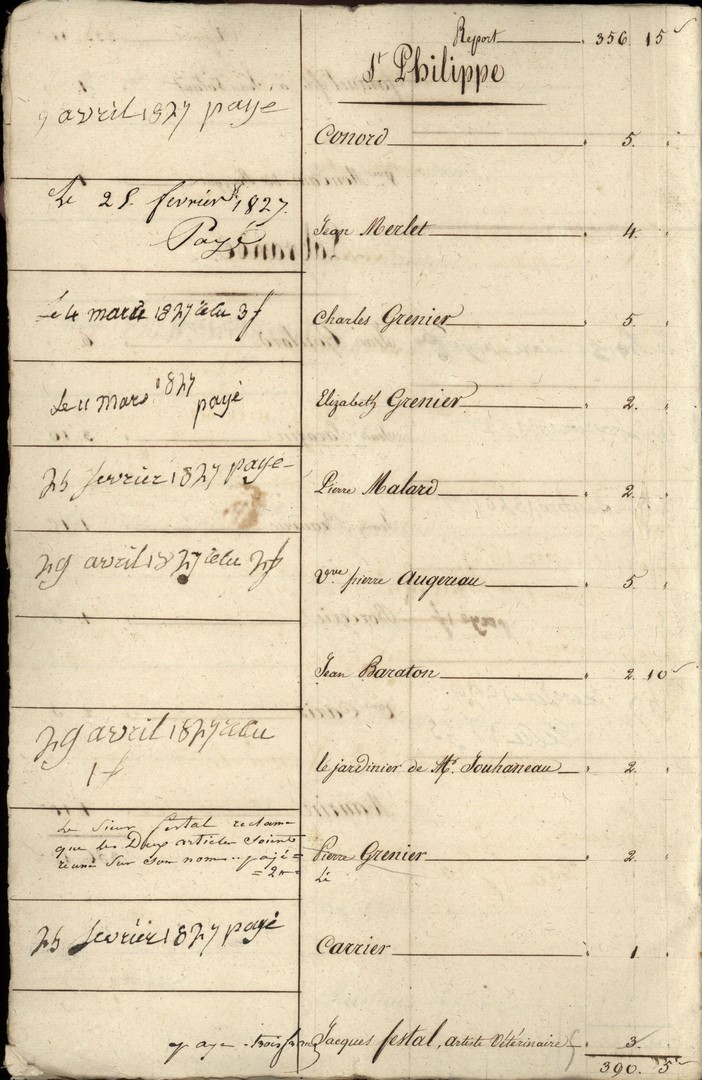 Report 356. 15s
St Philippe
9 avril 1827 payé
Conord 5.
Le 25. fevrier 1827.
Payé
Jean Merlet 4.
Le 4 mars 1827 recu 3 f
Charles Grenier 5.
Le 11 mars 1827
payé
Elizabeth Grenier 2.
25 fevrier 1827 payé
Pierre Malard 2.
29 avril 1827 recu 2f
Vve pierre Augereau 5.
Jean Baraton 2. 10s
29 avril 1827 recu
1 f
le jardinier de Mr. Jouhaneau 2.
Le Sieur festal reclame
que les Deux articles Soient
réunis Sur Son nom .. payé =
= 2 =
Pierre Grenier 2.
Lé
25 fevrier 1827 payé
Carrier 1.
payé trois francs
Jacques festal, artiste Vétérinaire 3.
390. 5s